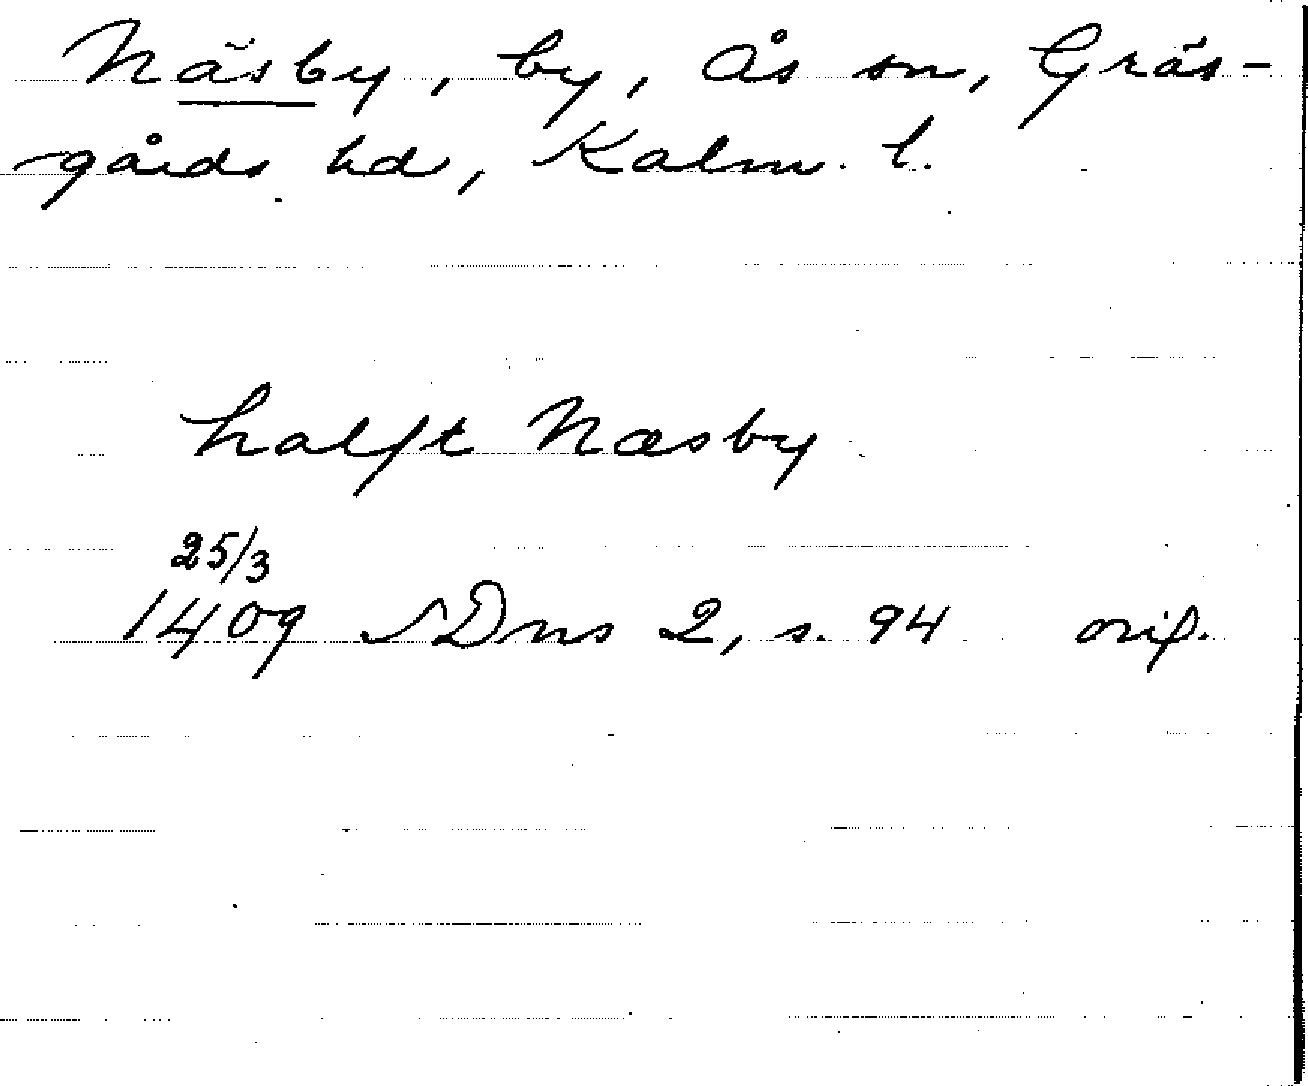 Näsby, by, Ås sn, Gräs-
gårds hd, Kalm. l.
halft Næsby
25/3
1409 SDns 2, s. 94 orig.